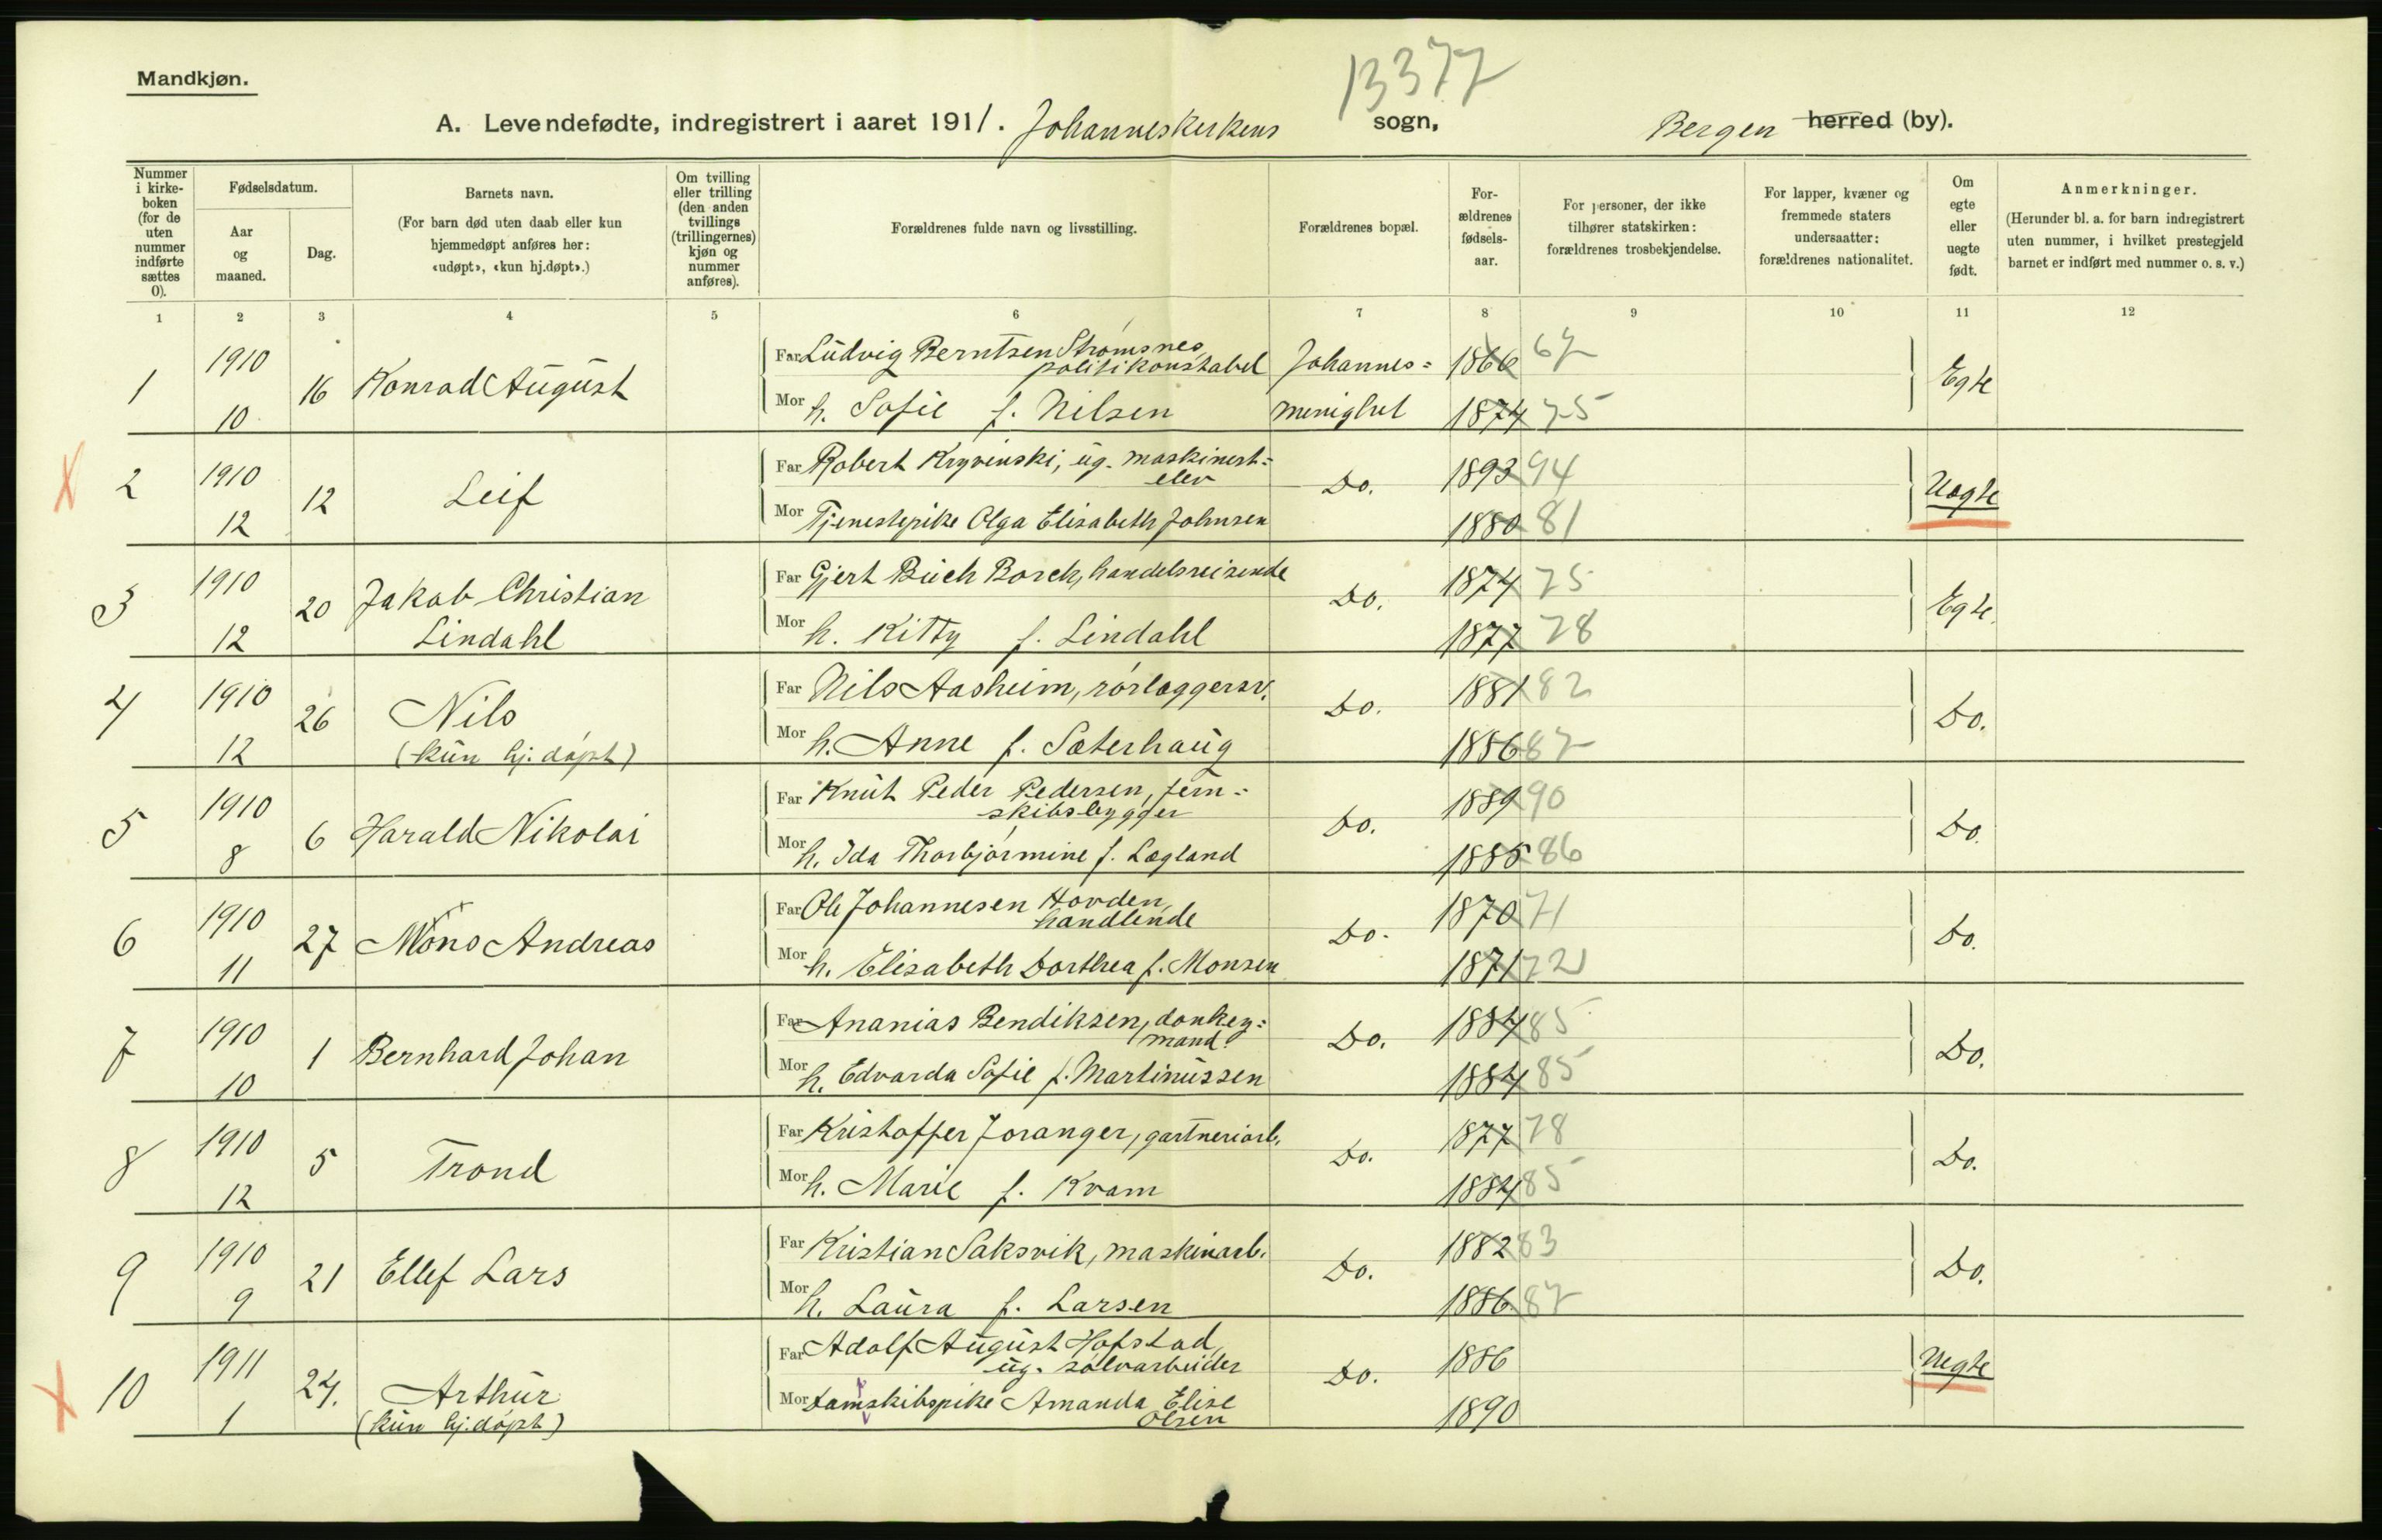 Mandkjøn.
13377
A. Levendefødte, indregistrert i aaret 1911. Johanneskirkens sogn, Bergen herred (by).
Nummer i kirke-boken (for de uten nummer indførte sættes 0).
Fødselsdatum.
Aar og maaned.
Dag.
Barnets navn.
(For barn død uten daab eller kun hjemmedøpt anføres her: «udøpt», «kun hj.døpt».)
Om tvilling eller trilling (den anden tvillings (trillingernes) kjøn og nummer anføres).
Forældrenes fulde navn og livsstilling.
Forældrenes bopæl.
For-ældrenes fødsels-aar.
For personer, der ikke tilhører statskirken: forældrenes trosbekjendelse.
For lapper, kvæner og fremmede staters undersaatter: forældrenes nationalitet.
Om egte eller uegte født.
Anmerkninger.
(Herunder bl. a. for barn indregistrert uten nummer, i hvilket prestegjeld barnet er indført med nummer o. s. v.)
1 2 3 4 5 6 7 8 9 10 11 12
1 1910 10 16 Konrad August
Far Ludvig Berntsen Strømsnes, politikonstabel Johannes= 1866 67
Mor h. Sofie f. Nilsen menighet 1874 75 Egte
2 1910 12 12 Leif
Far Robert Kryvinski, ug. maskinist=elev Do. 1893 94
Mor Tjenestepike Olga Elisabeth Johnsen 1880 81 Uegte
3 1910 12 20 Jakob Christian Lindahl
Far Gjert Büch Borch, handelsreisende Do. 1874 75
Mor h. Kitty f. Lindahl 1877 78 Egte.
4 1910 12 26 Nils
(kun hj. døpt)
Far Nils Aasheim, rørlæggersv. Do. 1881 82
Mor h. Anne f. Sæterhaug 1886 87 Do.
5 1910 8 6 Harald Nikolai
Far Knut Peder Pedersen, jern=skibsbygger Do. 1889 90
Mor h. Ida Thorbjørmine f. Lægland 1885 86 Do.
6 1910 11 27 Mons Andreas
Far Ole Johannesen Hovden, handlende Do. 1870 71
Mor h. Elisabeth Dorthea f. Monsen 1871 72 Do.
7 1910 10 1 Bernhard Johan
Far Ananias Bendiksen, donkey=mand. Do. 1884 85
Mor h. Edvarda Sofie f. Martinussen 1884 85 Do.
8 1910 12 5 Trond
Far Kristoffer Joranger, gartneriarb. Do. 1877 78
Mor h. Marie f. Kvam 1884 85 Do.
9 1910 9 21 Ellef Lars
Far Kristian Saksvik, maskinarb. Do. 1882 83
Mor h. Laura f. Larsen 1886 87 Do.
10 1911 1 24. Arthur
(kun hj. døpt)
Far Adolf August Hofstad, ug. sølvarbeider Do. 1886
Mor Damskibspike Amanda Elise Olsen 1890 Uegte